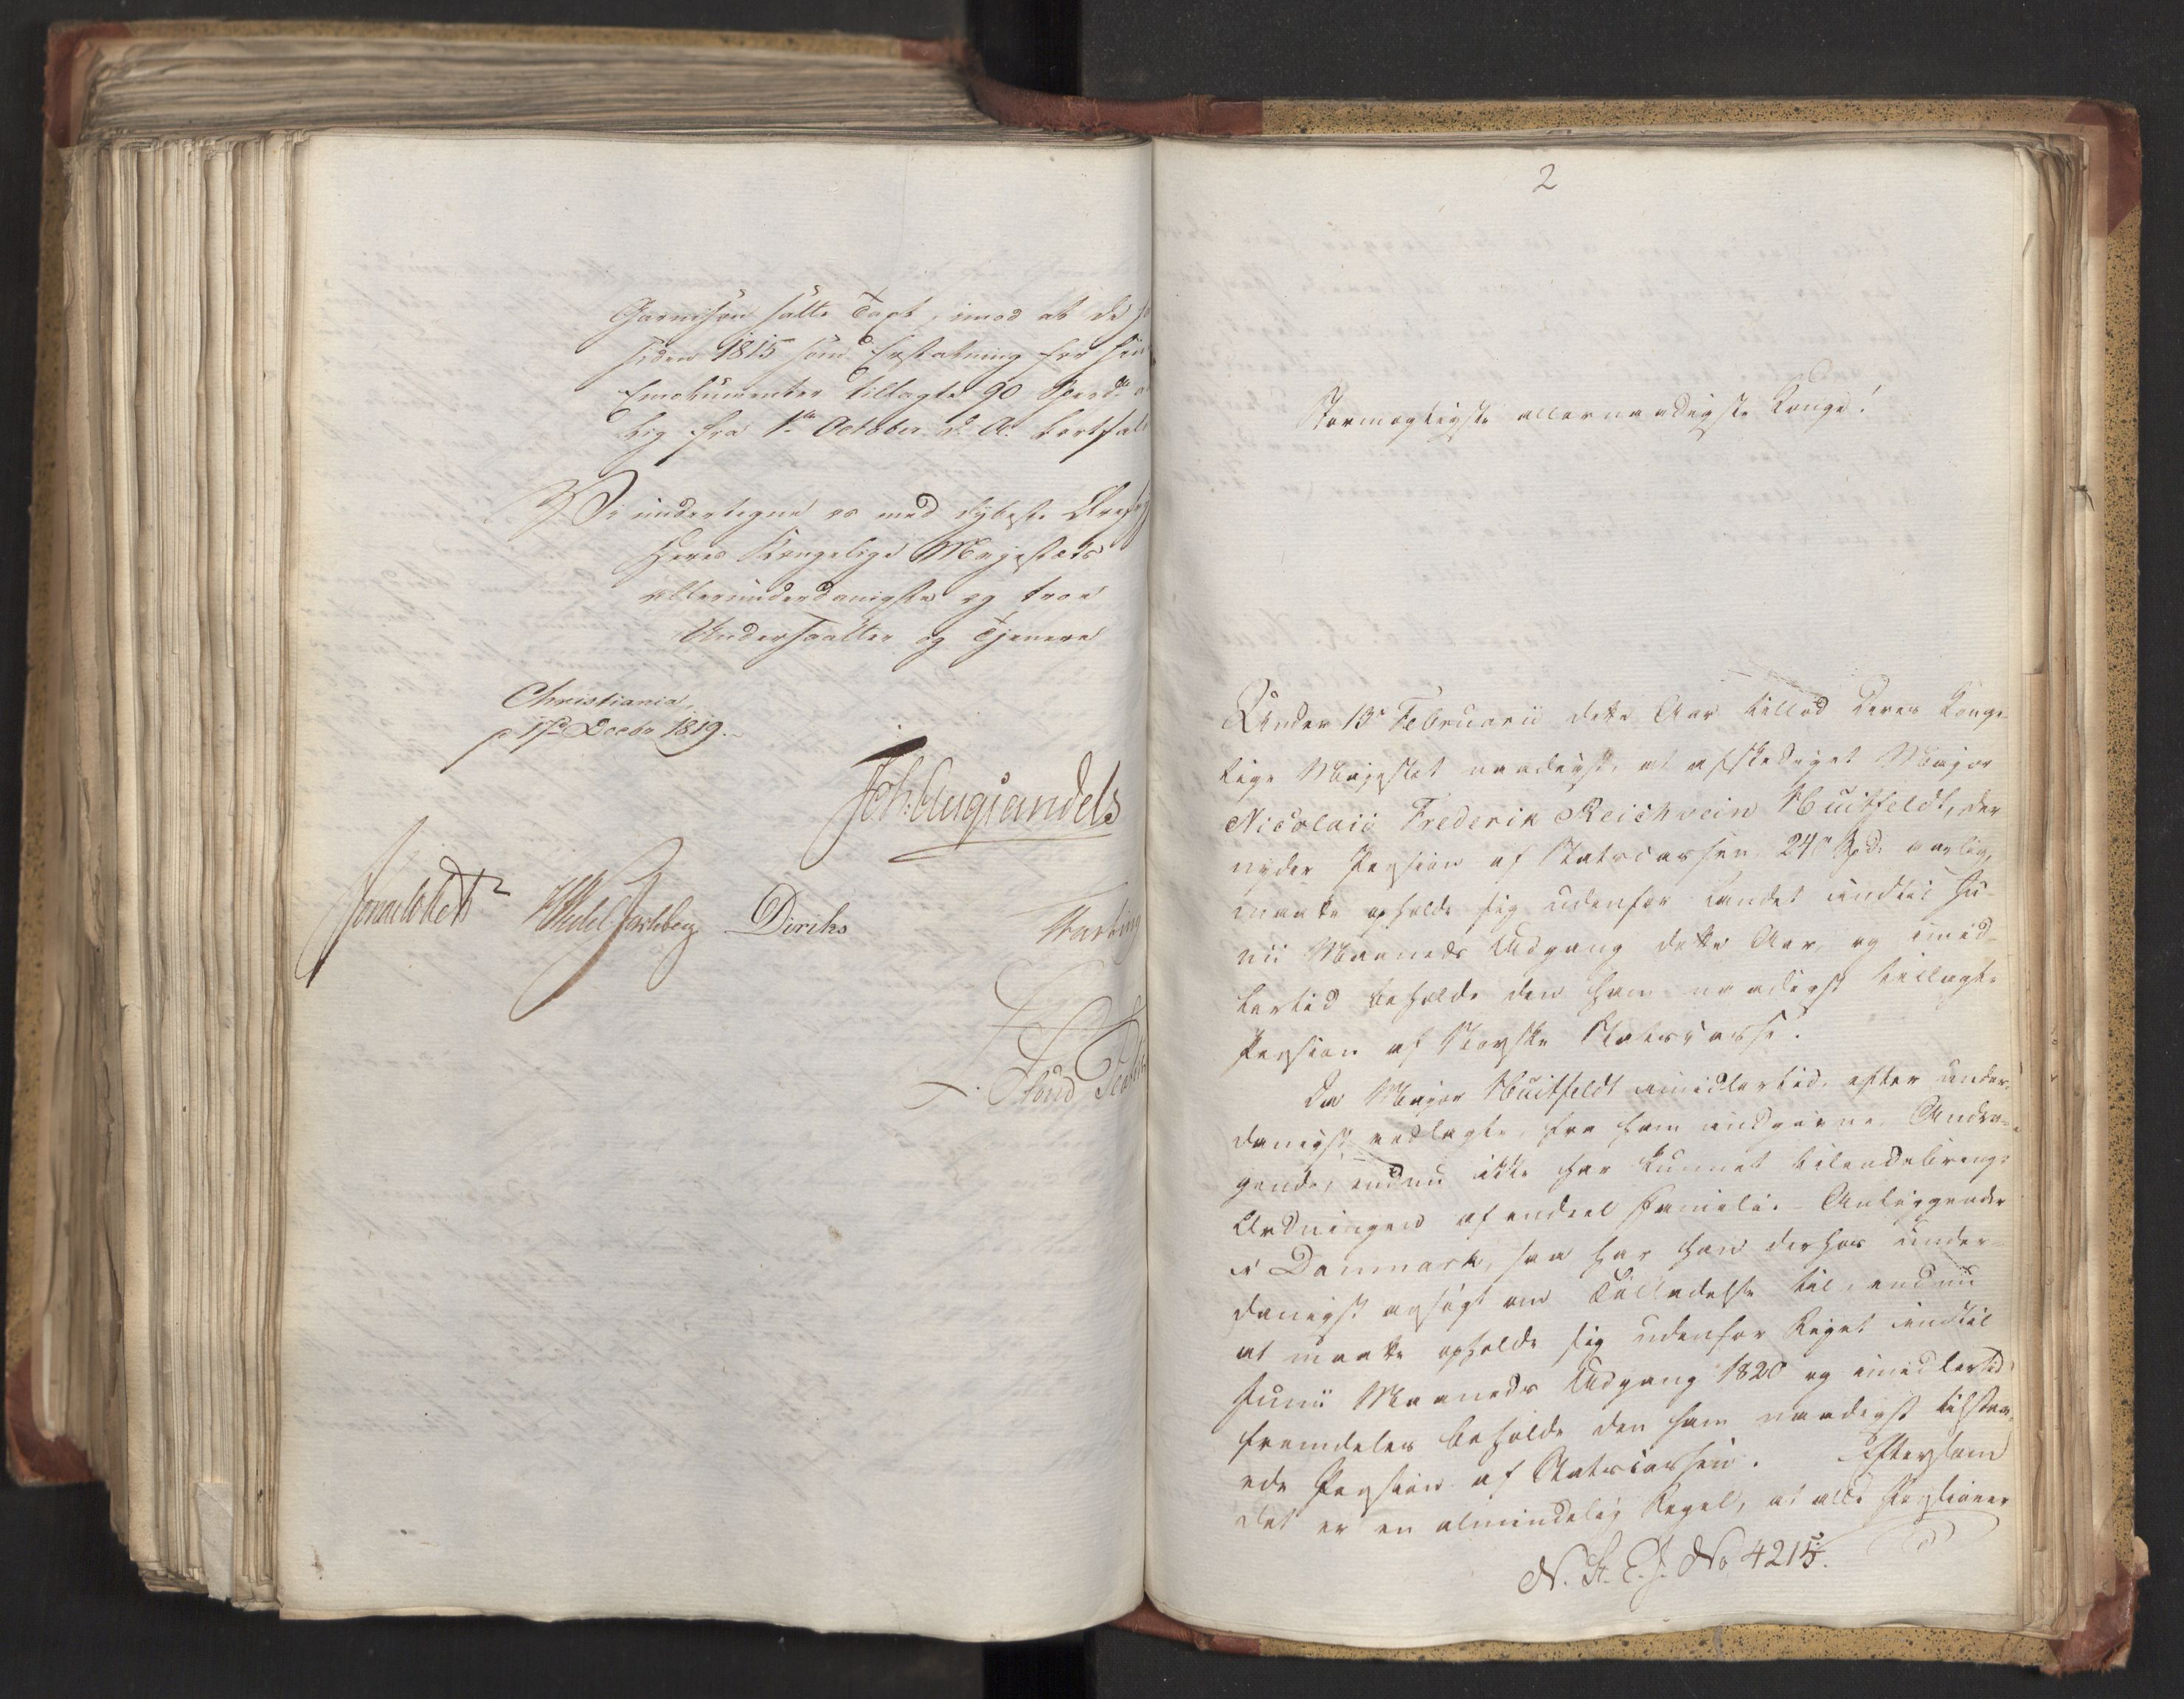 Garnison satte Taxt, imod at de
siden 1815 som Erstatning for
Emolumenter tillagte 90 Spd.
lig fra 1ste October d. A. bortfal
Vi undertegne os med dybeste
Deres Kongelige Majestæts
allerunderdanigste og troe
Undersaatter og Tjenere
Christiania,
17de Decbr 1819.
Joh: Aug: Sandels
Sommerhielm HWedel Jarlsberg Diriks
2
Stormægtigste allernaadigste Konge!
Under 13de Februarii dette Aar tillod Deres Konge-
lige Majestæt naadigst, at afskediget Major
Nicolaii Frederik Reichwein Huitfeldt, der
nyder Pension af Statscassen 240 Spd: aarlig,
maatte opholde sig udenfor Landet indtil Ju-
nii Maaneds Udgang dette Aar, og imid-
lertid beholde den ham naadigst tillagte
Pension af Norske Statscasse.
Da Major Huitfeldt imidlertid, efter under-
danigst vedlagte, fra ham indgivne, Andra-
gende, endnu ikke har kunnet tilendebringe
Ordningen af endeel Familie-Anliggender
i Danmark, saa har han derhos under-
danigst ansøgt om Tilladelse til, endnu
at maatte opholde sig udenfor Riget indtil
Junii Maaneds Udgang 1820 og imidlertid
fremdeles beholde den ham naadigst tilstaa-
ede Pension af Statscassen. Eftersom
det er en almindelig Regel, at alle Pensioner
N. St. E. J. No 4215.